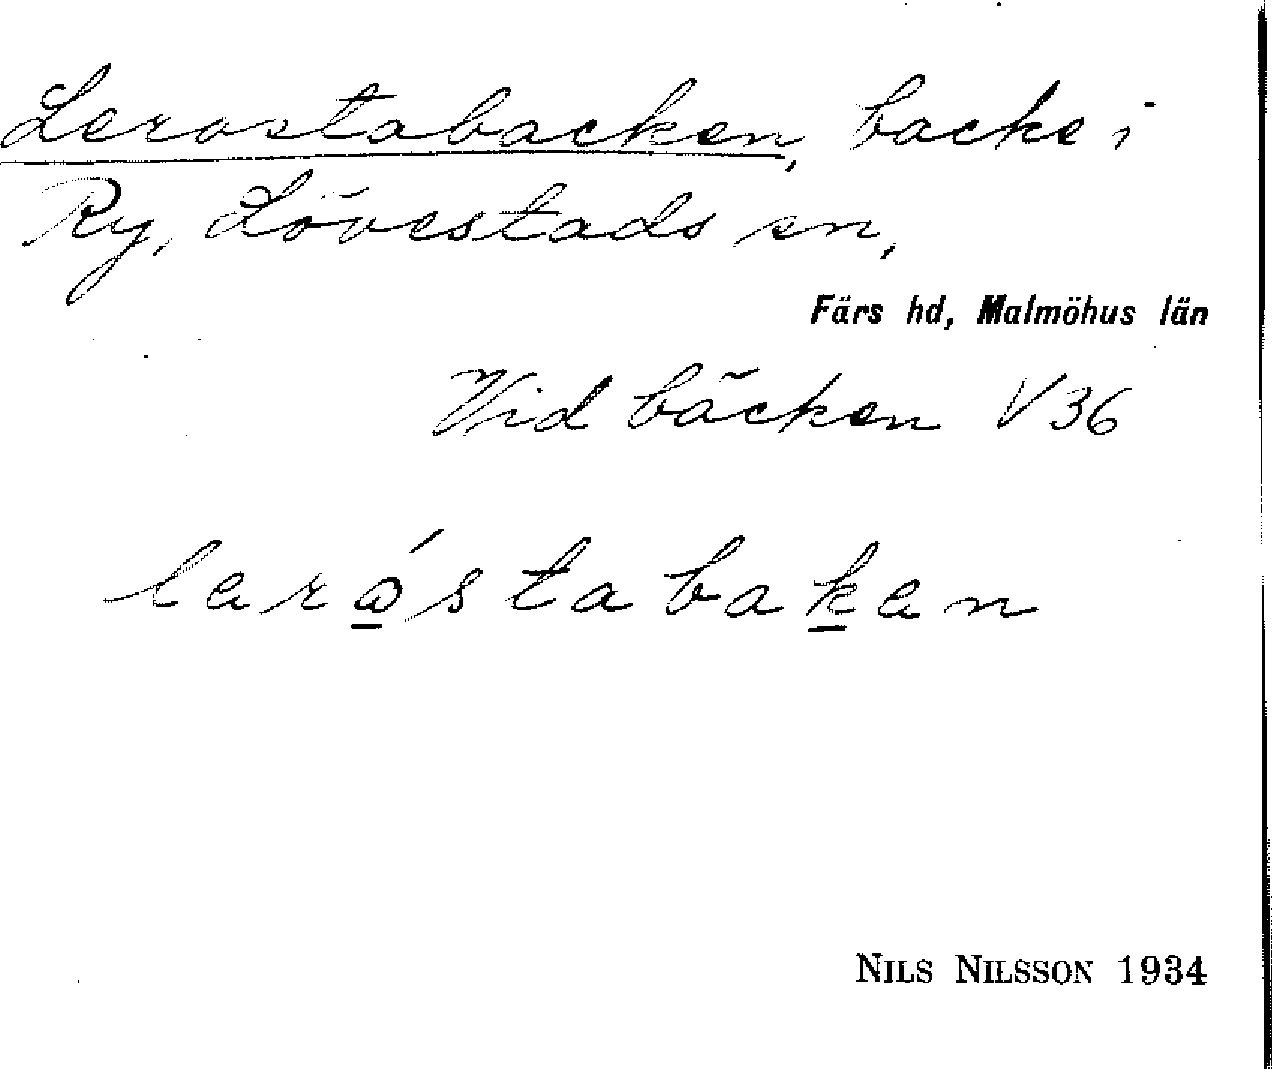 Lerostabacken, backe i
Ry, Lövestads sn,
Färs hd, Malmöhus län
Vid bäcken V36
lerǻstabaken
NILS NILSSON 1934